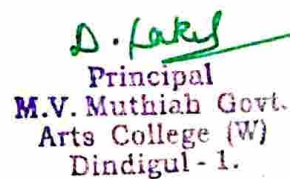 Principal
M.V. Muthiah Govt.
Arts College (W)
Dindigul - 1.